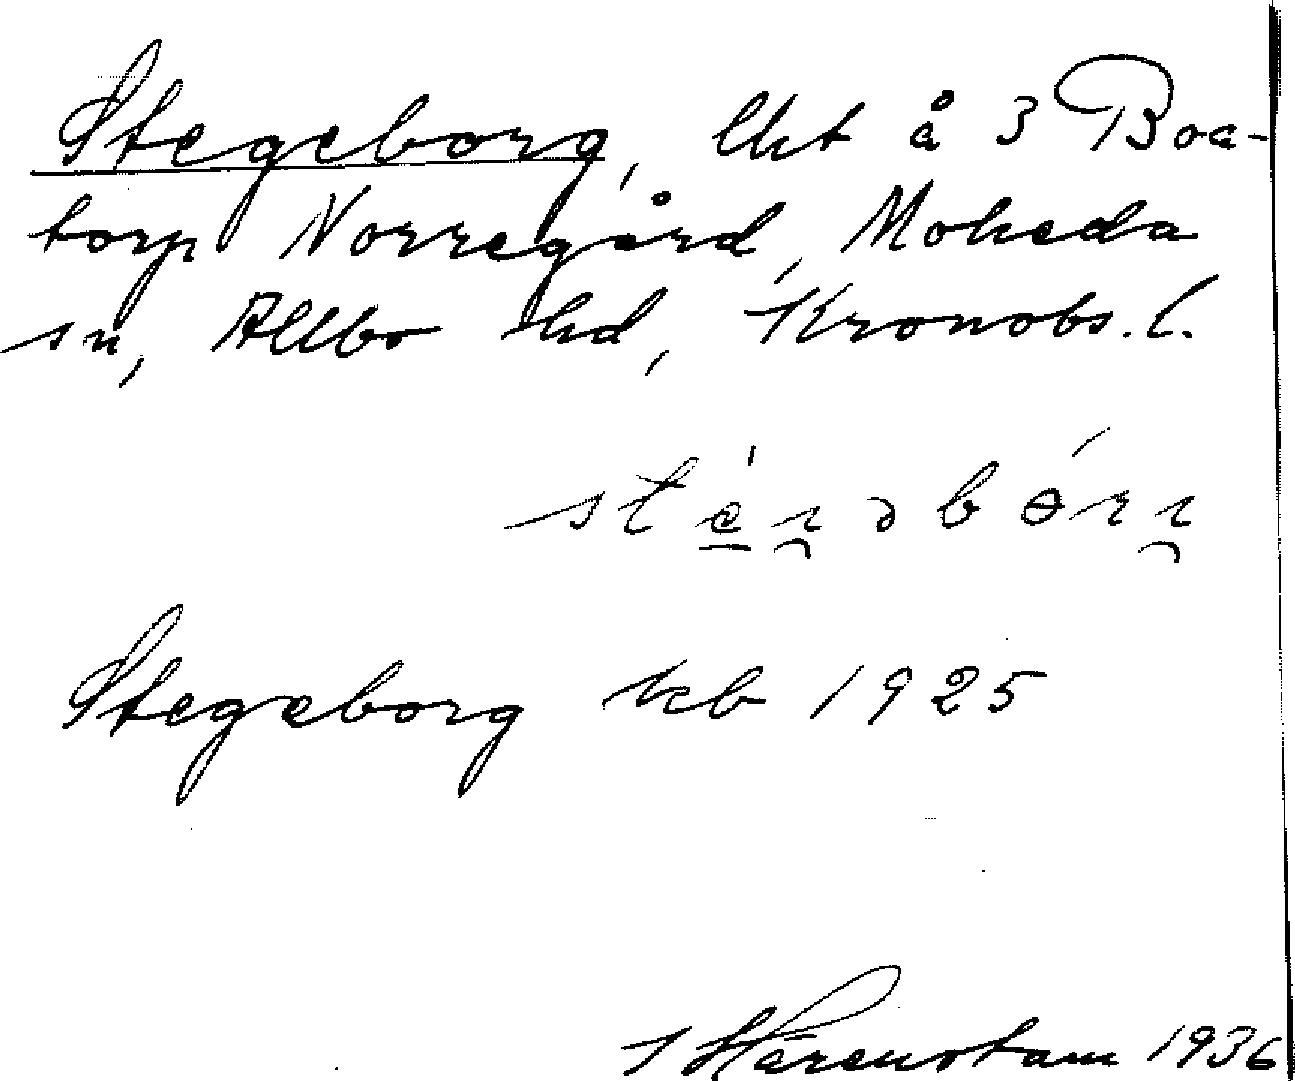 Stegeborg, lht å 3 Boa-
torp Norregård, Moheda
sn, Allbo hd, Kronobs. l.
Stegeborg kb 1925
1936